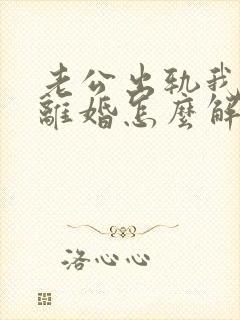 老公出轨我
離婚怎麼解
洛心心